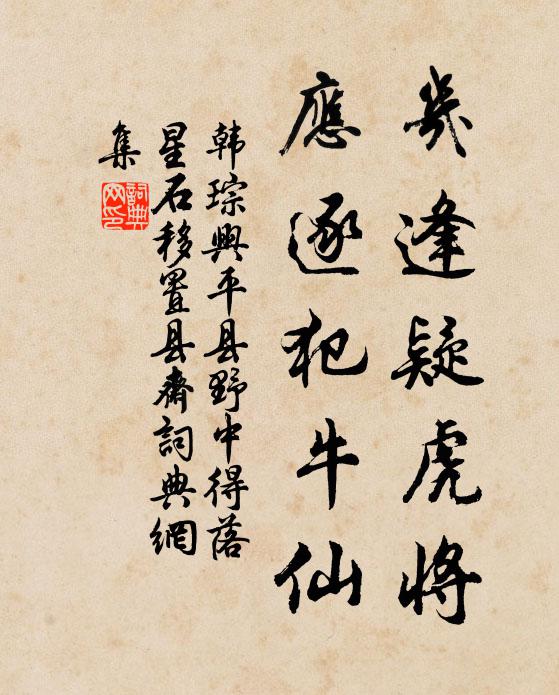 幾逢疑虎將
應逐犯牛仙
韩琮興平县野中得落
星石移置县齋詞典網
集
詞典
网印